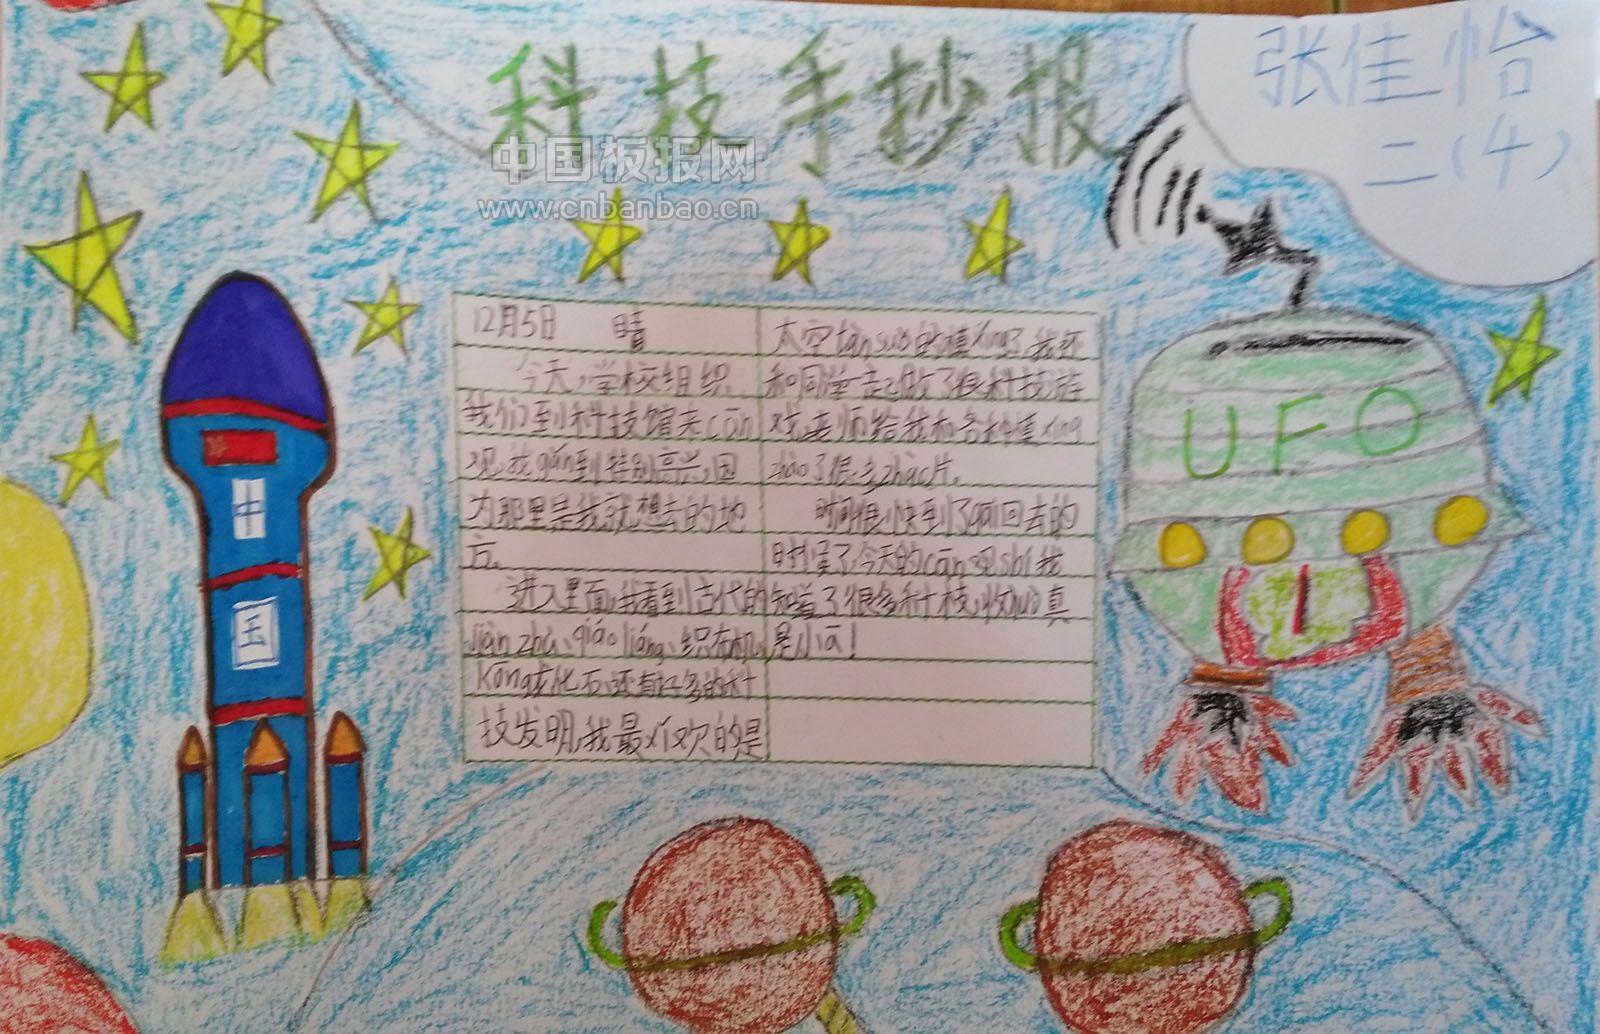 科技手抄报
张佳怡
二(4)
中国板报网
www.cnbanbao.cn
中
国
UFO
12月5日 晴
今天,学校组织
我们到科技馆去cān
观,我gǎn到特别高兴,因
为那里是我就想去的地
方。
进入里面,我看到古代的
jiàn zhù、qiáo liáng、织布机、
kǒng龙化石,还有好多的科
技发明,我最喜欢的是
太空tàn suǒ的模xíng了,我还
和同学一起做了很科技游
戏,老师给我和各种模xíng
zhào了很多zhào片。
时间很快到了 回去的
时候了今天的cān观shǐ我
知道了很多科技, 真
是小ā!